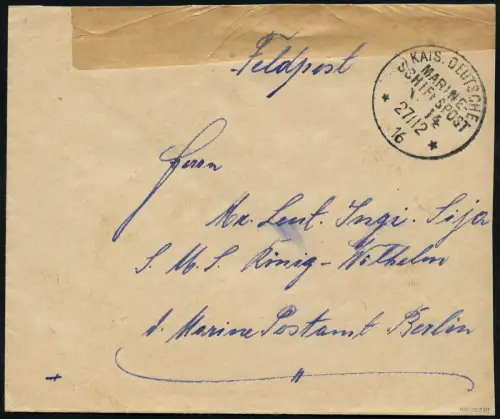 Feldpost
KAIS. DEUTSCHE
MARINE
SCHIFFSPOST
14
27/12
16
Herrn
S. M. S. König-Wilhelm
d. Marine Postamt Berlin